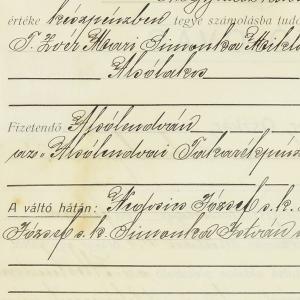 értéke készpénzben tegye számolásba
T. Zvér Mari Simonka Mikl
Alsólakos
Fizetendő Alsólendván
az „Alsólendvai Takarékpén
A váltó hátán: József s. k.
József s. k. Simonka István